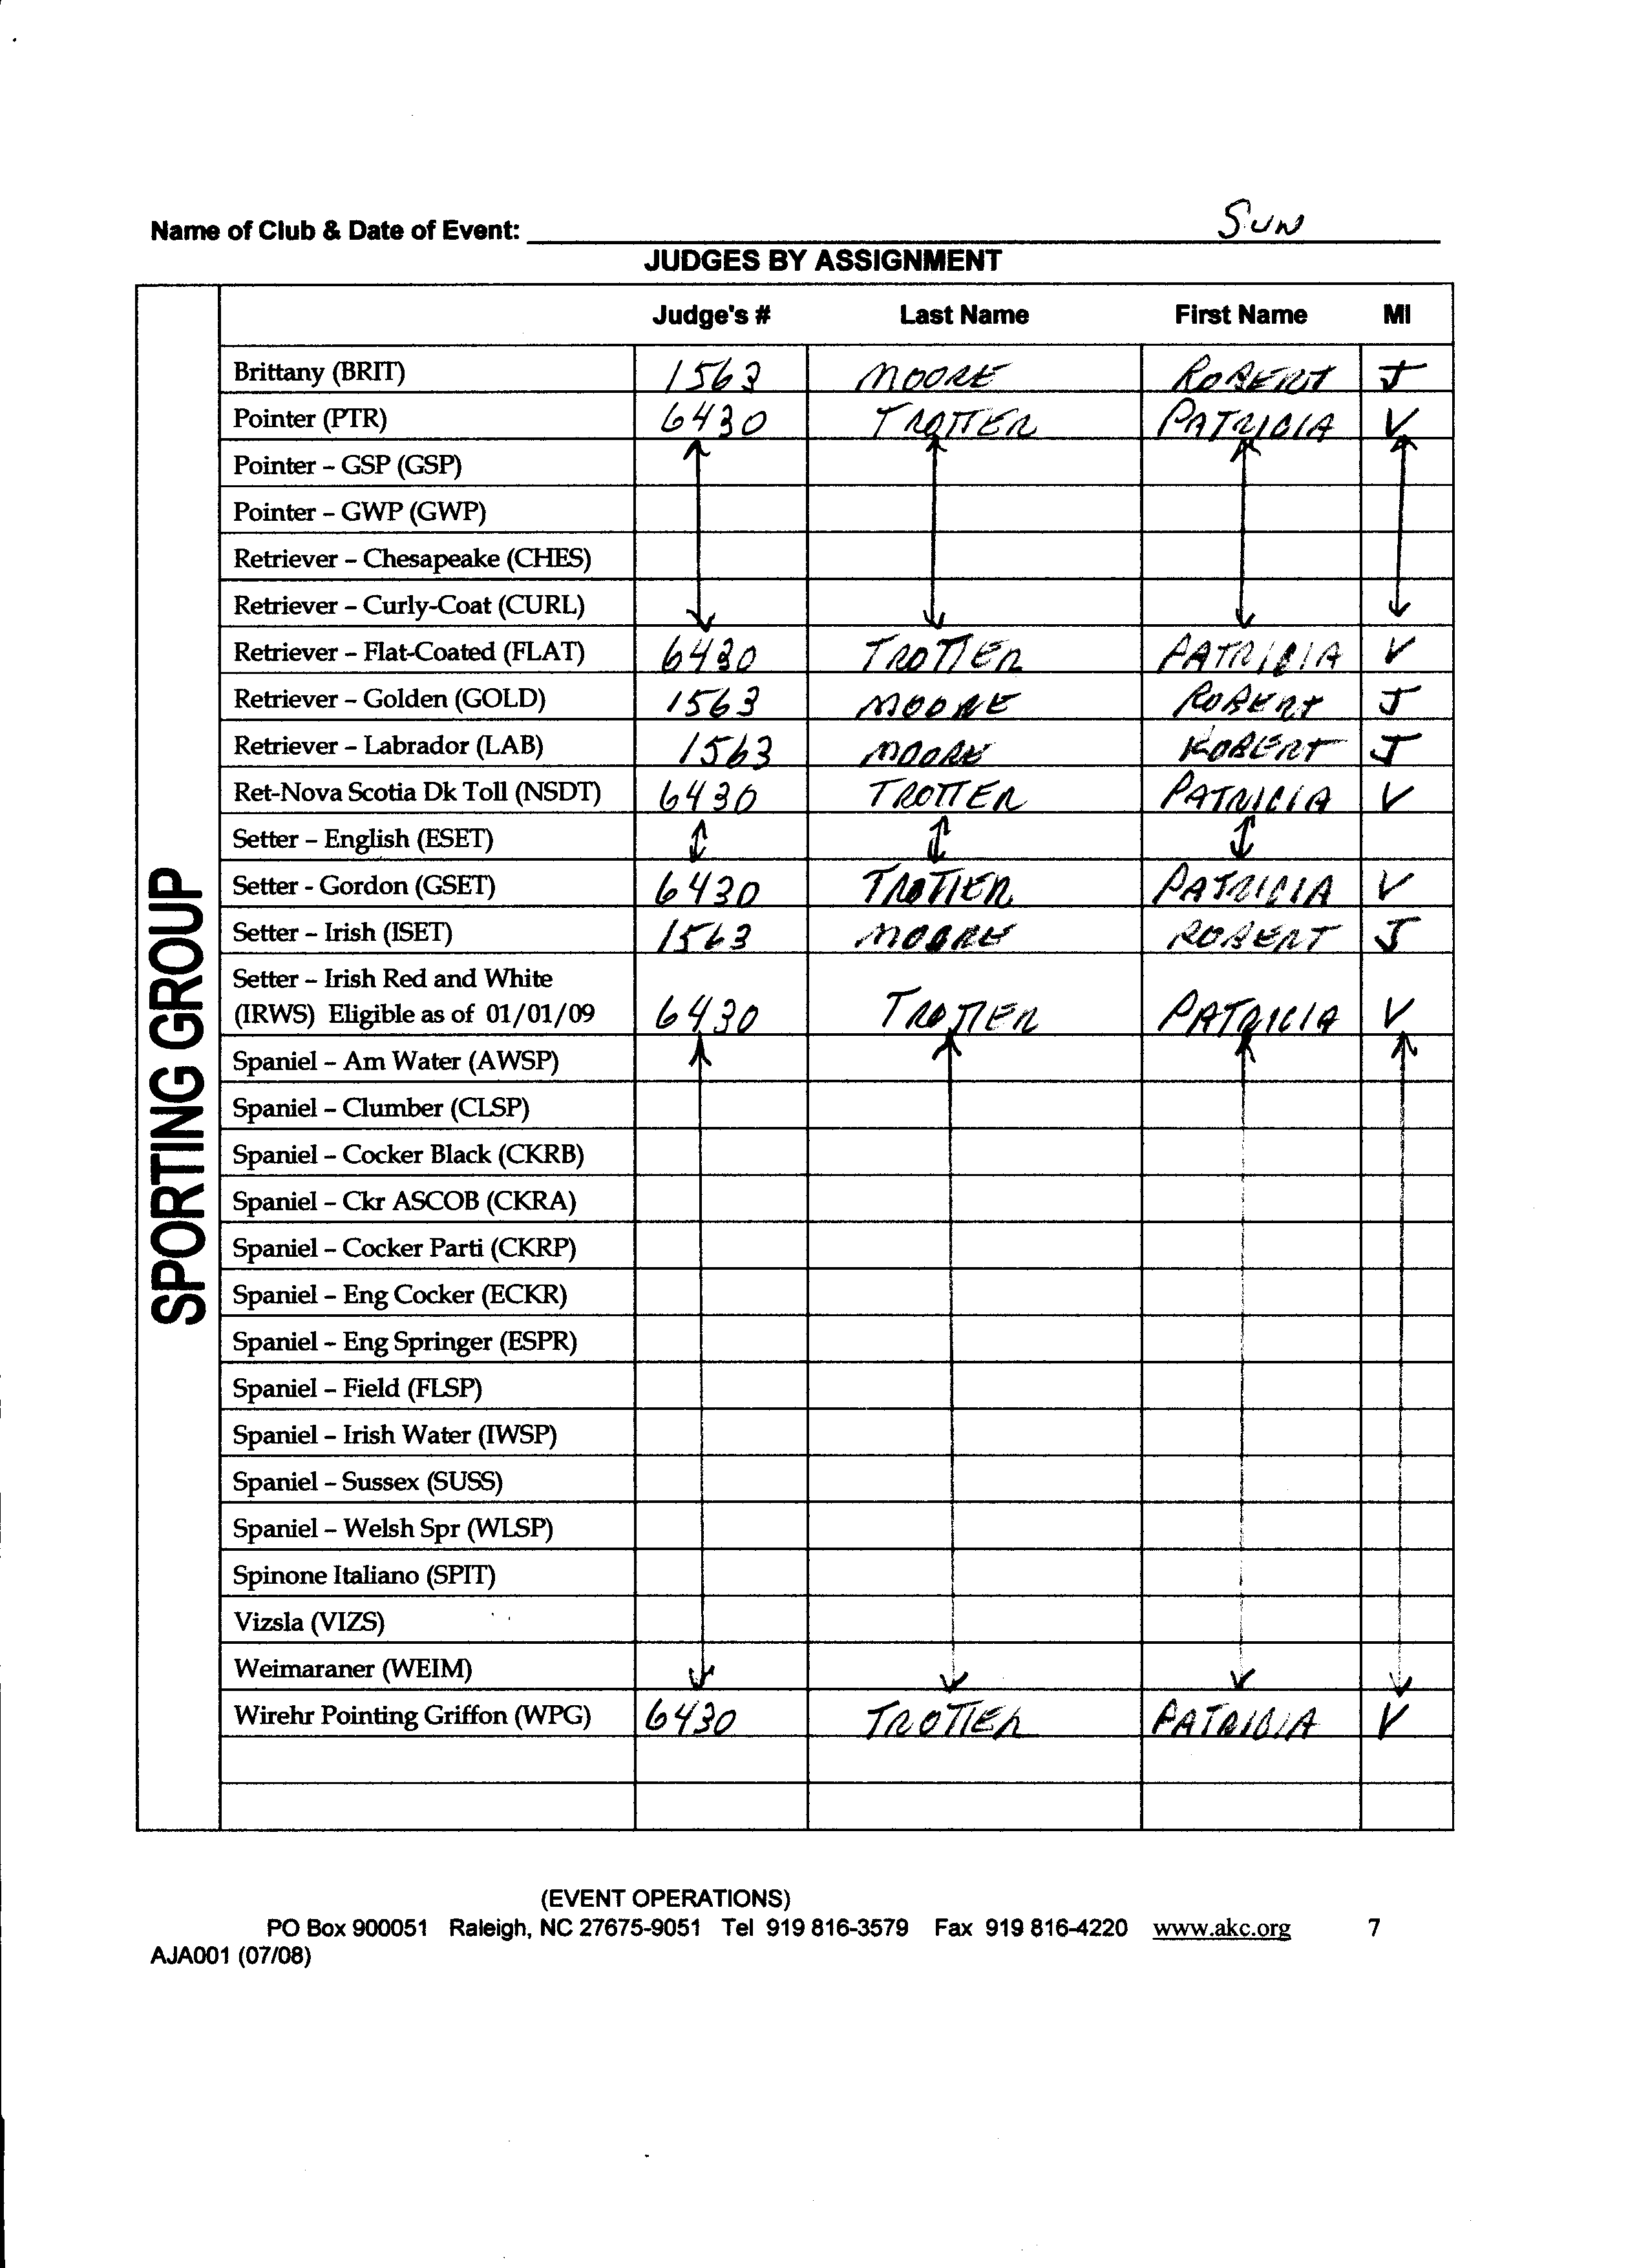 SUN
Name of Club & Date of Event:
JUDGES BY ASSIGNMENT
SPORTING GROUP
Judge's # Last Name First Name MI
Brittany (BRIT) 1563 MOORE ROBERT J
Pointer (PTR) 6430 TROTTER PATRICIA V
Pointer – GSP (GSP)
Pointer – GWP (GWP)
Retriever – Chesapeake (CHES)
Retriever – Curly-Coat (CURL)
Retriever – Flat-Coated (FLAT) 6430 TROTTER PATRICIA V
Retriever – Golden (GOLD) 1563 MOORE ROBERT J
Retriever – Labrador (LAB) 1563 MOORE ROBERT J
Ret-Nova Scotia Dk Toll (NSDT) 6430 TROTTER PATRICIA V
Setter – English (ESET)
Setter - Gordon (GSET) 6430 TROTTER PATRICIA V
Setter – Irish (ISET) 1563 MOORE ROBERT J
Setter – Irish Red and White
(IRWS) Eligible as of 01/01/09 6430 TROTTER PATRICIA V
Spaniel – Am Water (AWSP)
Spaniel – Clumber (CLSP)
Spaniel – Cocker Black (CKRB)
Spaniel – Ckr ASCOB (CKRA)
Spaniel – Cocker Parti (CKRP)
Spaniel – Eng Cocker (ECKR)
Spaniel – Eng Springer (ESPR)
Spaniel – Field (FLSP)
Spaniel – Irish Water (IWSP)
Spaniel – Sussex (SUSS)
Spaniel – Welsh Spr (WLSP)
Spinone Italiano (SPIT)
Vizsla (VIZS)
Weimaraner (WEIM)
Wirehr Pointing Griffon (WPG) 6430 TROTTER PATRICIA V
(EVENT OPERATIONS)
PO Box 900051 Raleigh, NC 27675-9051 Tel 919 816-3579 Fax 919 816-4220 www.akc.org 7
AJA001 (07/08)